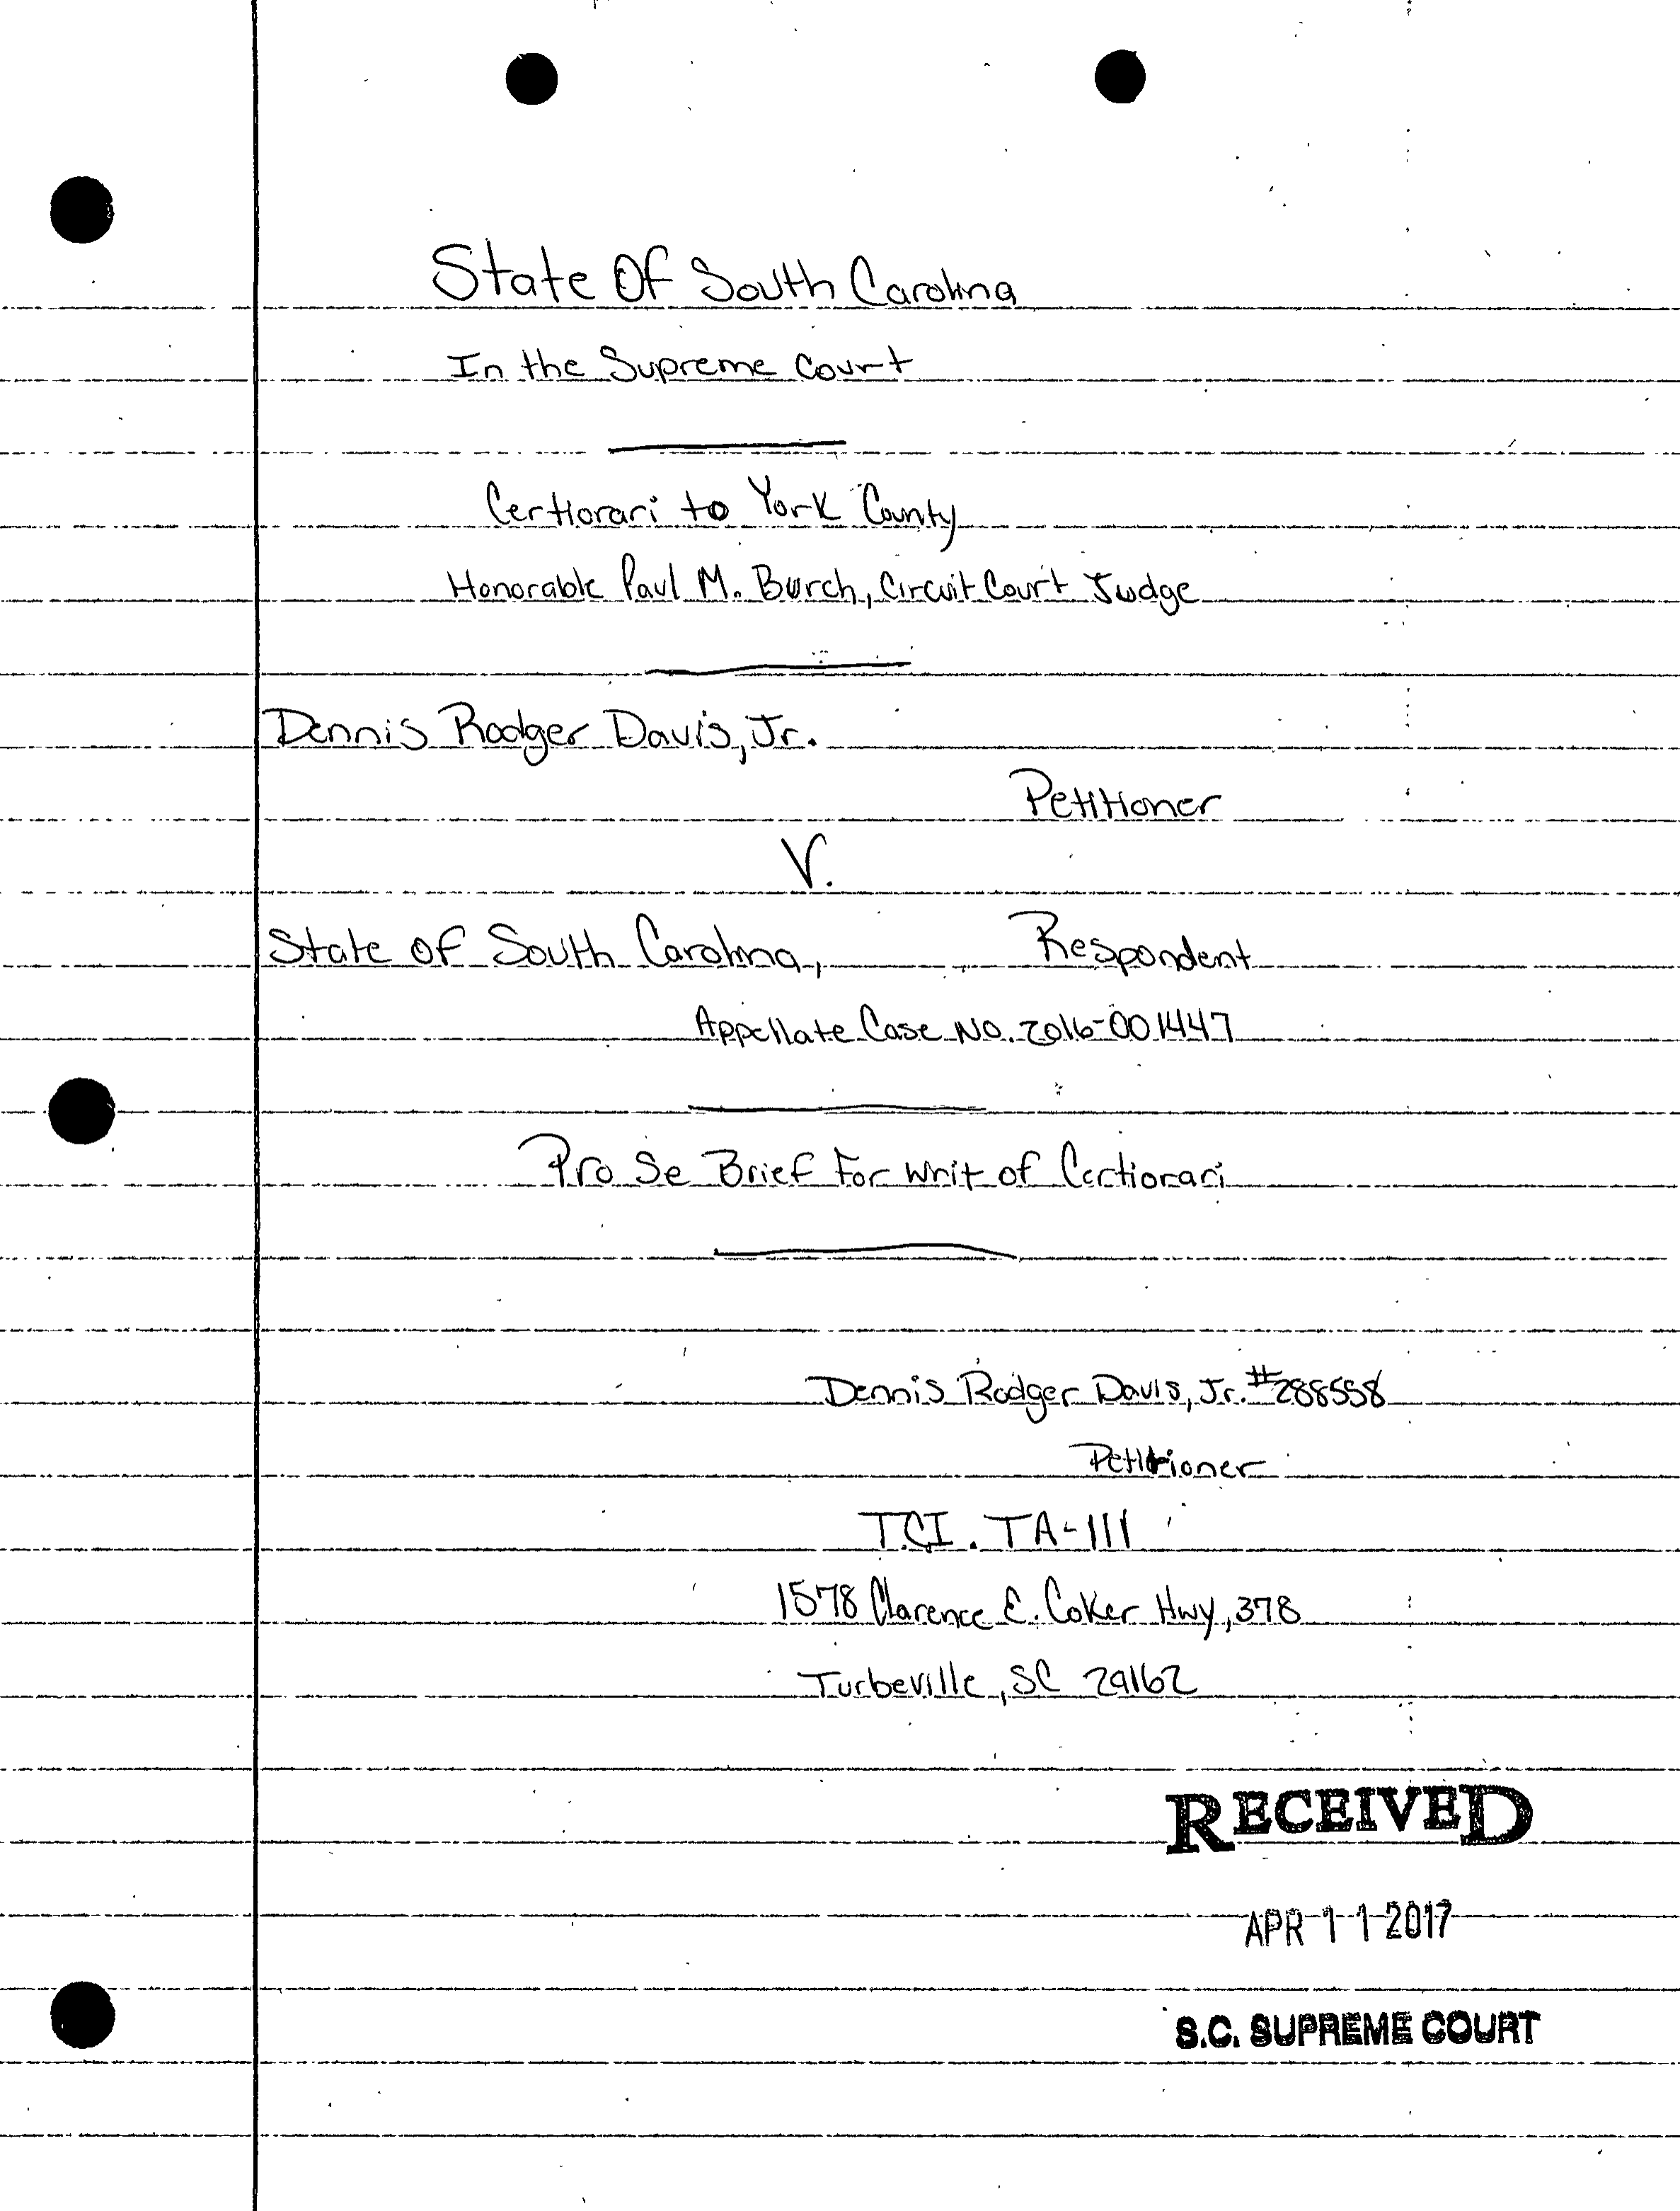 State Of South Carolina
In the Supreme Court
Certiorari to York County
Honorable Paul M. Burch, Circuit Court Judge
Dennis Rodger Davis, Jr.
Petitioner
V.
State of South Carolina, Respondent
Appellate Case No. 2016-001447
Pro Se Brief For Writ of Certiorari
Dennis Rodger Davis, Jr. #288558
Petitioner
T.C.I. TA-111
1578 Clarence E. Coker Hwy, 378
Turbeville, SC 29162
RECEIVED
APR 11 2017
S.C. SUPREME COURT